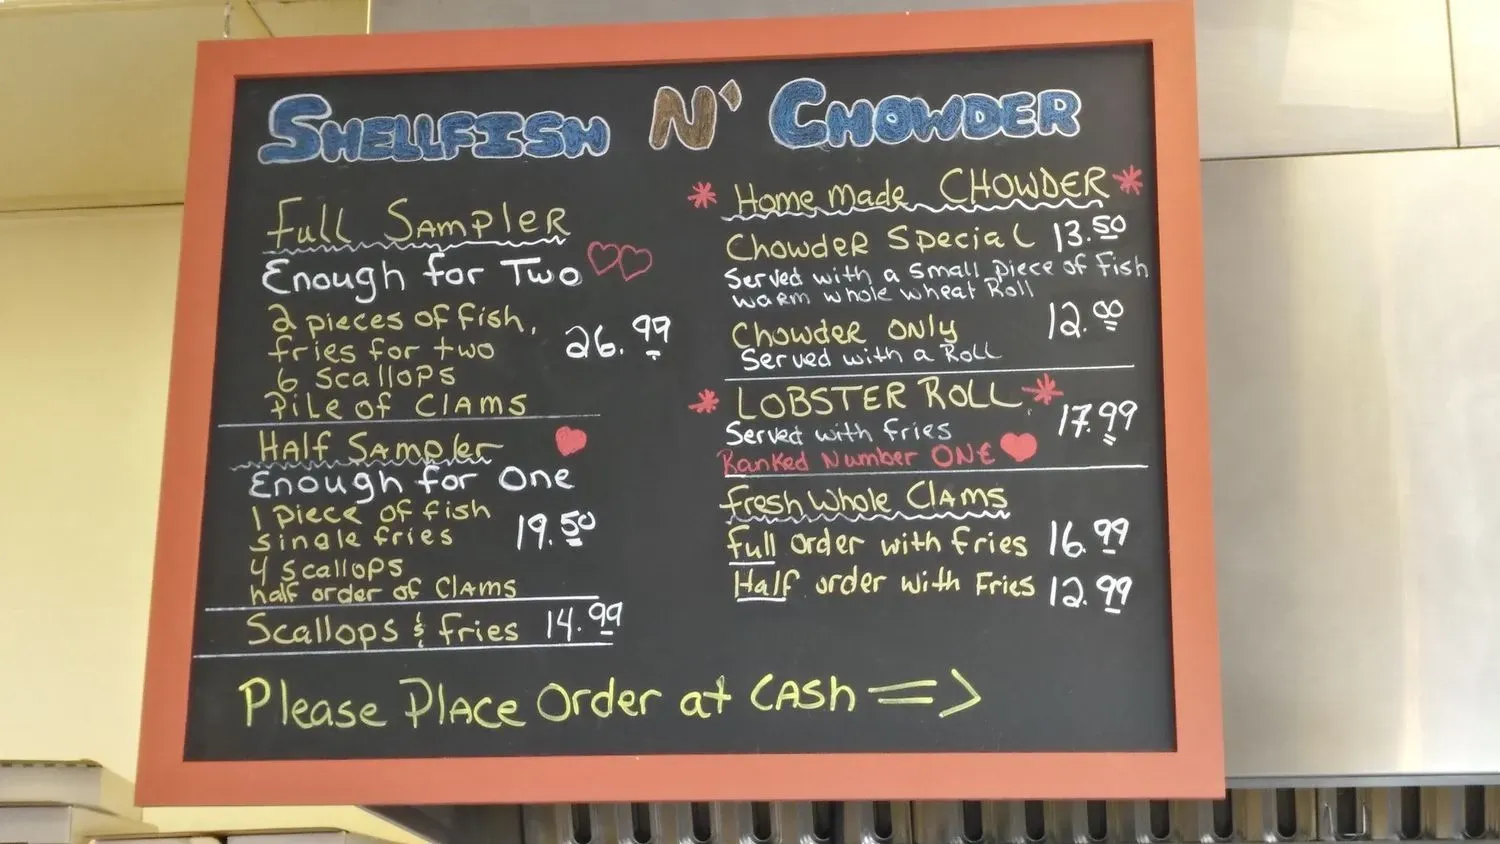 SHELLFISH N' CHOWDER
Full SAMPLER
Enough for Two
2 pieces of fish,
fries for two
26.99
6 scallops
Pile of CLAMS
Half SAMPLER
Enough for One
1 piece of fish
single fries
19.50
4 scallops
half order of CLAMS
Scallops & fries 14.99
* Home Made CHOWDER *
Chowder Special 13.50
Served with a small piece of Fish
warm whole wheat Roll
Chowder only 12.00
Served with a Roll
* LOBSTER ROLL *
Served with fries 17.99
Ranked Number ONE
fresh Whole CLAMS
Full order with fries 16.99
Half order with Fries 12.99
Please PLACE Order at CASH =>